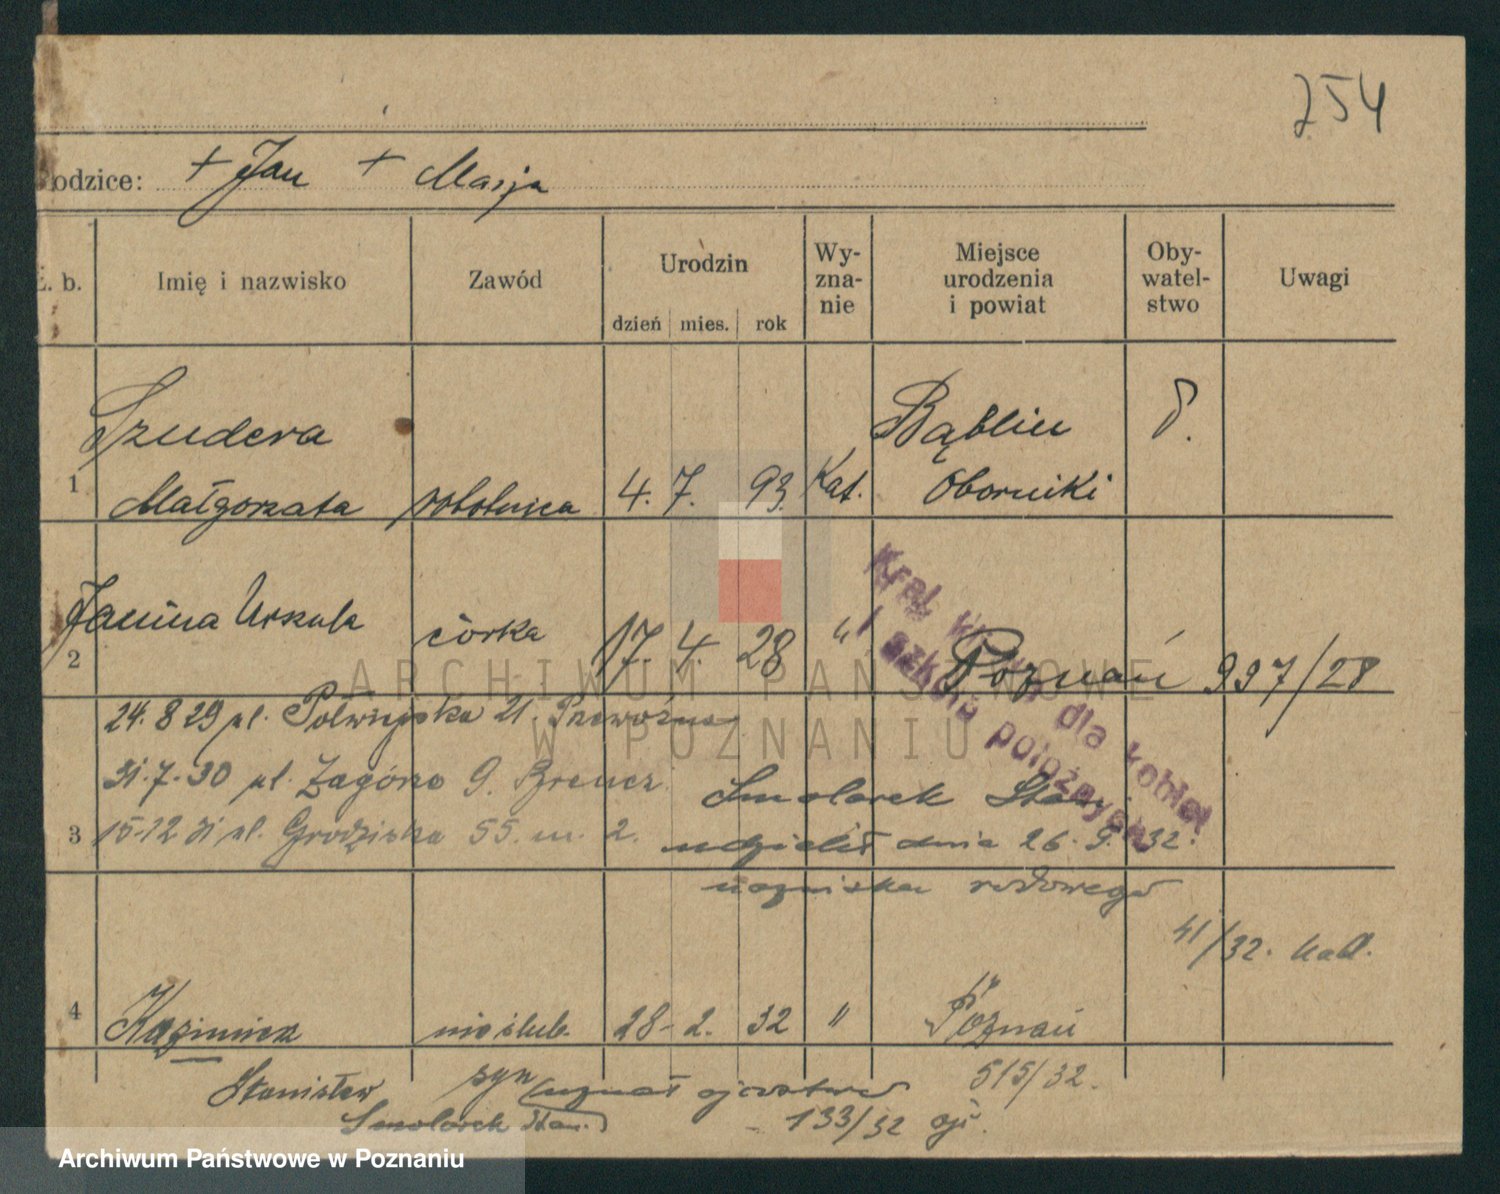 254
odzice: + Jan + Marja
Ł. b.
Imię i nazwisko
Zawód
Urodzin
dzień mies. rok
Wy-
zna-
nie
Miejsce
urodzenia
i powiat
Oby-
watel-
stwo
Uwagi
Szudera
Bąblin
1 Małgorzata robotnica 4. 7. 93. Kat. Oborniki
Janina Urszula
2 córka 17. 4. 28 " Poznań 997/28
Kraj. dla kobiet
i szkoła położnych
24. 8 29 ul. Półwiejska 21.
31.7.30 ul. Zagórze 9.
Smolarek Stan.
3 15-12 31 ul. Grodziska 55. m. 2.
udzielił dnia 26. 9. 32.
nazwiska rodowego
41/32.
4 Kazimierz nieślub. 28- 2. 32 " Poznań
515/32.
Stanisław syn uznał ojcostwo
Smolarek Stan. - 133/32
ARCHIWUM PAŃSTWOWE
W POZNANIU
Archiwum Państwowe w Poznaniu